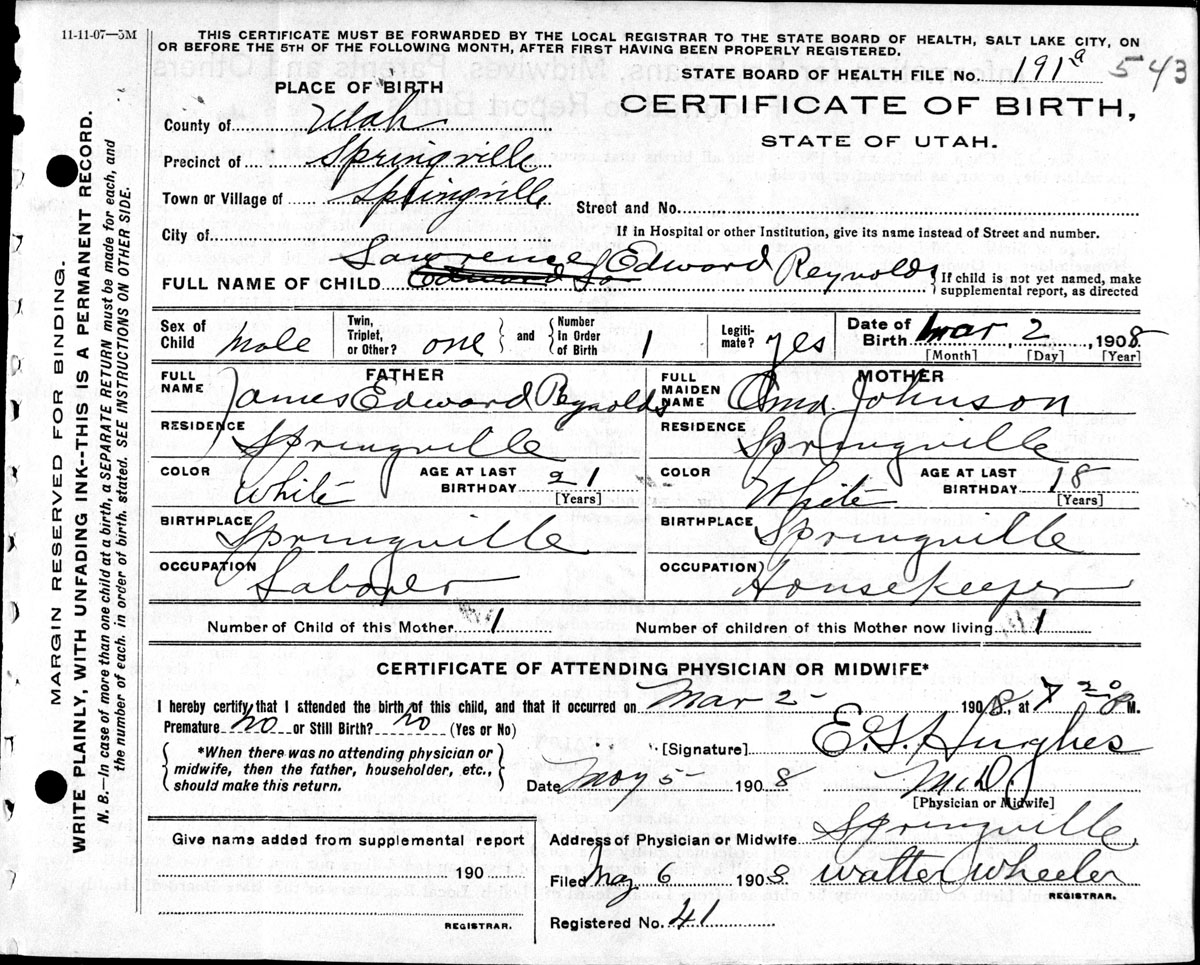 11-11-07—5M
THIS CERTIFICATE MUST BE FORWARDED BY THE LOCAL REGISTRAR TO THE STATE BOARD OF HEALTH, SALT LAKE CITY, ON
OR BEFORE THE 5TH OF THE FOLLOWING MONTH, AFTER FIRST HAVING BEEN PROPERLY REGISTERED.
STATE BOARD OF HEALTH FILE No. 191 a 543
PLACE OF BIRTH
CERTIFICATE OF BIRTH,
STATE OF UTAH.
County of Utah
Precinct of Springville
Town or Village of Springville
Street and No.
If in Hospital or other Institution, give its name instead of Street and number.
City of
FULL NAME OF CHILD Edward Lawrence Edward Reynolds
{If child is not yet named, make
supplemental report, as directed
Sex of Child Male
Twin, Triplet, or Other? one and {Number In Order of Birth 1
Legiti-mate? yes
Date of Birth Mar 2, 1908
[Month] [Day] [Year]
FATHER
MOTHER
FULL NAME James Edward Reynolds
FULL MAIDEN NAME Johnson
RESIDENCE Springville
RESIDENCE Springville
COLOR White AGE AT LAST BIRTHDAY 21 [Years]
COLOR White AGE AT LAST BIRTHDAY 18 [Years]
BIRTHPLACE Springville
BIRTHPLACE Springville
OCCUPATION Laborer
OCCUPATION Housekeeper
Number of Child of this Mother 1
Number of children of this Mother now living 1
CERTIFICATE OF ATTENDING PHYSICIAN OR MIDWIFE*
I hereby certify that I attended the birth of this child, and that it occurred on Mar 2 1908, at 7 20 M.
Premature no or Still Birth? no (Yes or No)
{*When there was no attending physician or
midwife, then the father, householder, etc.,
should make this return.}
[Signature] E. G. Hughes
Date May 5 1908 M.D.
[Physician or Midwife]
Give name added from supplemental report
190
REGISTRAR.
Address of Physician or Midwife Springville
Filed May 6 1908 Walter Wheeler
REGISTRAR.
Registered No. 41
MARGIN RESERVED FOR BINDING.
WRITE PLAINLY, WITH UNFADING INK--THIS IS A PERMANENT RECORD.
N. B.—In case of more than one child at a birth, a SEPARATE RETURN must be made for each, and
the number of each, in order of birth, stated. SEE INSTRUCTIONS ON OTHER SIDE.